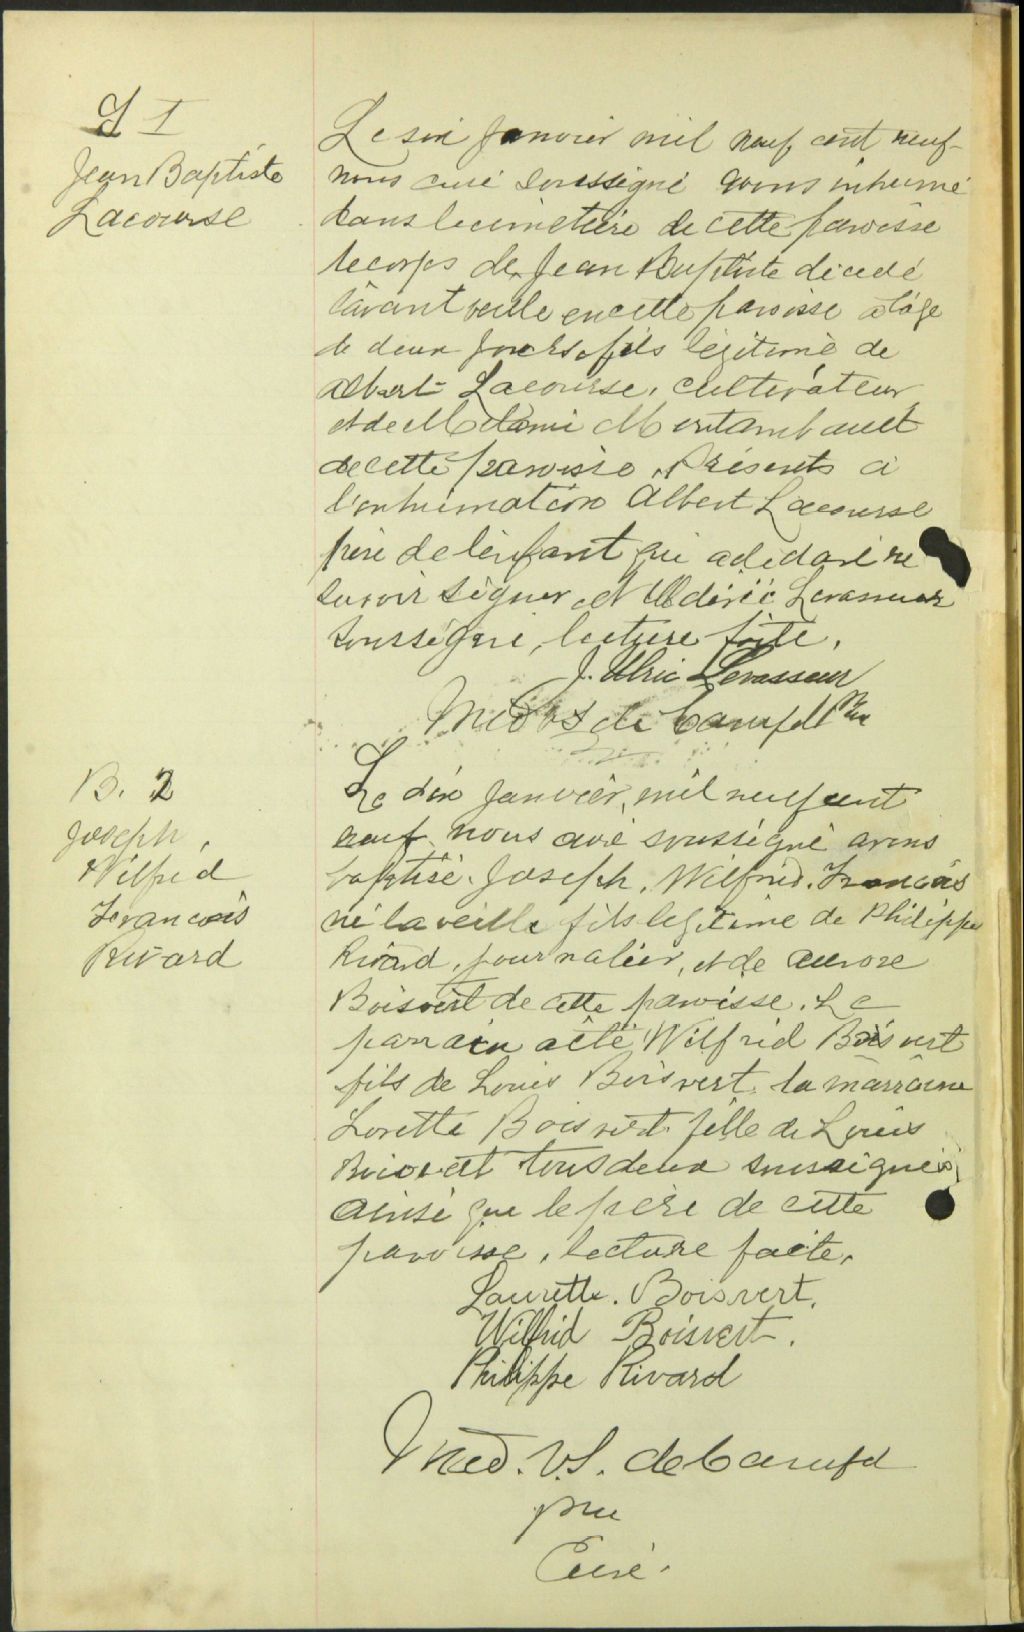 S 1
Jean Baptiste
Lacourse
Le six Janvier mil neuf cent neuf
nous curé soussigné avons inhumé
dans le cimetière de cette paroisse
le corps de Jean Baptiste décedé
l'avant veille en cette paroisse a l'âge
de deux jours fils légitimé de
Albert Lacourse, cultivateur
et de Mélanie Montambault
de cette paroisse. Présents a
l'inhumation Albert Lacourse
père de l'enfant qui a déclaré ne
savoir signer et Levasseur
soussigné, lecture faite.
J. Ulric Levasseur
de Ptre
B. 2
Joseph,
Wilfrid
Francois
Rivard
Le dix Janvier, mil neuf cent
neuf nous curé soussigné avons
baptisé Joseph, Wilfrid, Francois
né la veille fils legitime de Philippe
Rivard, journalier, et de Aurore
Boisvert de cette paroisse. Le
parrain a été Wilfrid Boisvert
fils de Louis Boisvert la marraine
Lorette Boisvert fille de Louis
Boisvert tous deux soussignés
ainsi que le père de cette
paroisse, lecture faite.
Laurette. Boisvert.
Wilfrid Boisvert.
Philippe Rivard
Med. V.S. de
ptre
Curé.